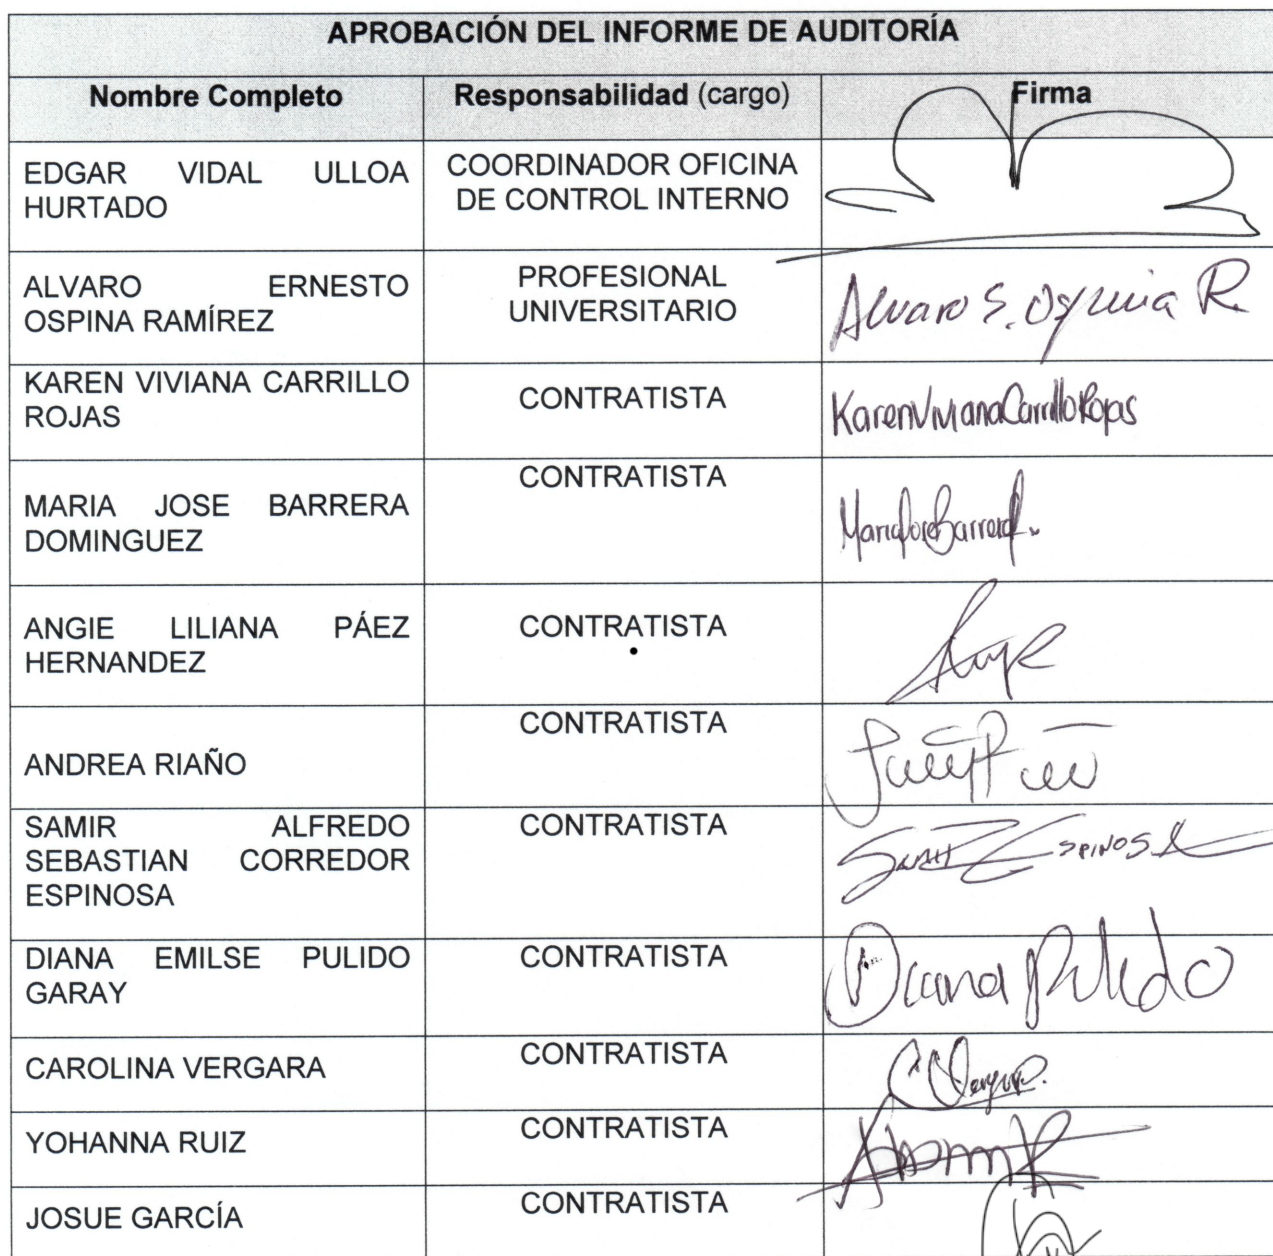 APROBACIÓN DEL INFORME DE AUDITORÍA
Nombre Completo Responsabilidad (cargo) Firma
EDGAR VIDAL ULLOA HURTADO
COORDINADOR OFICINA DE CONTROL INTERNO
ALVARO ERNESTO OSPINA RAMÍREZ
PROFESIONAL UNIVERSITARIO
Alvaro E. Ospina R.
KAREN VIVIANA CARRILLO ROJAS
CONTRATISTA
Karen Viviana Carrillo Rojas
MARIA JOSE BARRERA DOMINGUEZ
CONTRATISTA
Maria Jose Barrera
ANGIE LILIANA PÁEZ HERNANDEZ
CONTRATISTA
ANDREA RIAÑO
CONTRATISTA
SAMIR ALFREDO SEBASTIAN CORREDOR ESPINOSA
CONTRATISTA
ESPINOSA
DIANA EMILSE PULIDO GARAY
CONTRATISTA
Diana Pulido
CAROLINA VERGARA
CONTRATISTA
YOHANNA RUIZ
CONTRATISTA
JOSUE GARCÍA
CONTRATISTA